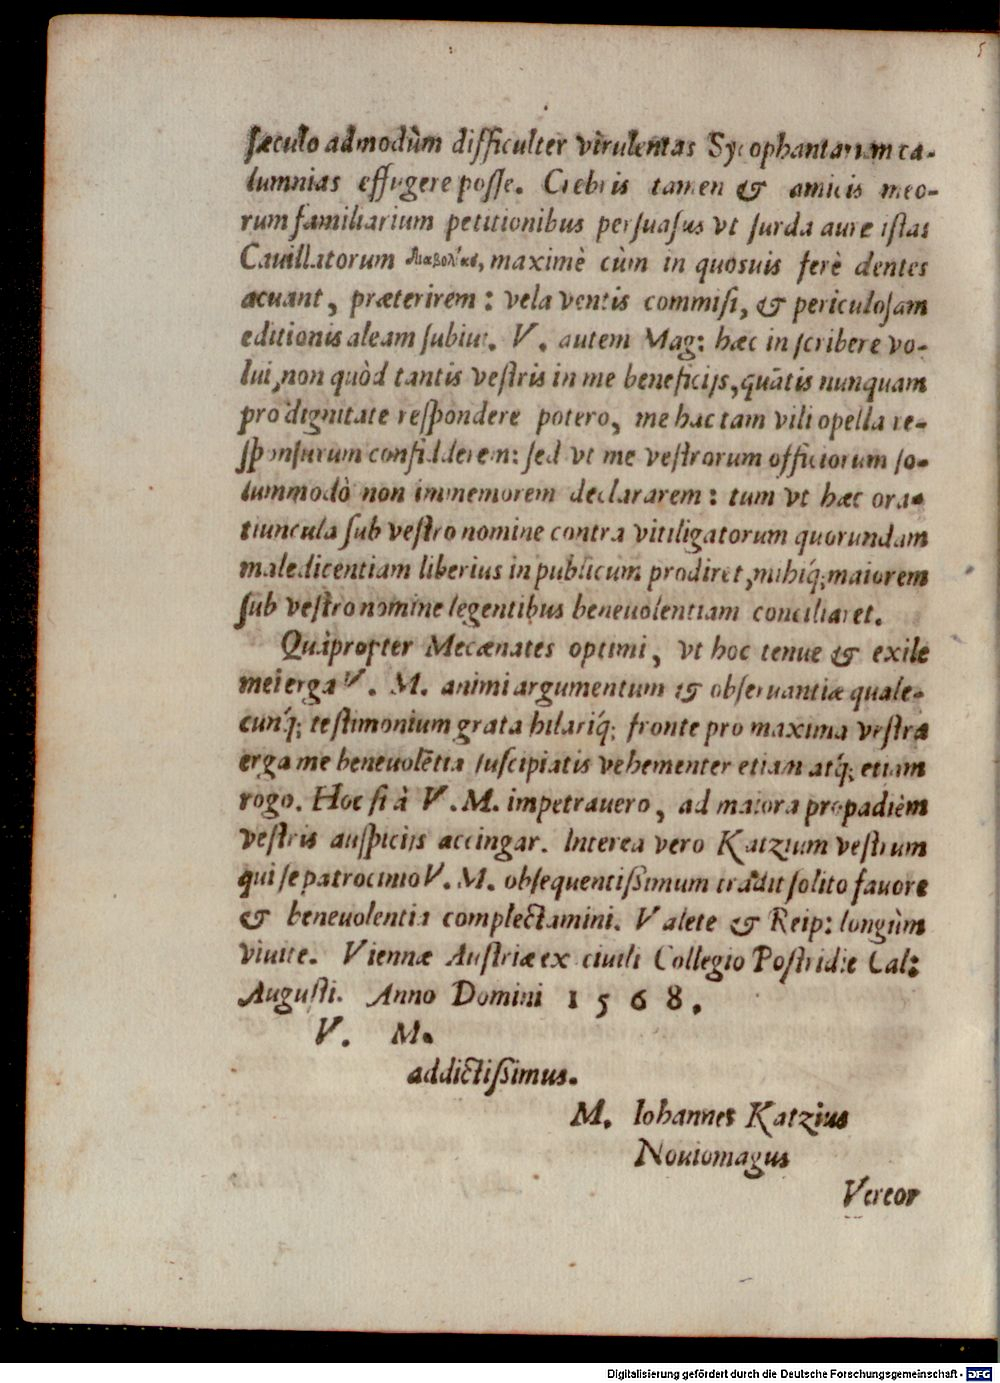 sæculo admodùm difficulter virulentas Sycophantarum ca-
lumnias effugere posse. Crebris tamen & amicis meo-
rum familiarium petitionibus persuasus vt surda aure istas
Cauillatorum maximè cùm in quosuis ferè dentes
acuant, præterirem: vela ventis commisi, & periculosam
editionis aleam subiui. V. autem Mag: hæc inscribere vo-
lui, non quòd tantis vestris in me beneficijs, quātis nunquam
pro dignitate respondere potero, me hac tam vili opella re-
sponsurum confidderem: sed vt me vestrorum officiorum so-
lummodò non immemorem declararem: tum vt hæc ora-
tiuncula sub vestro nomine contra vitiligatorum quorundam
maledicentiam liberius in publicum prodiret, mihiq́; maiorem
sub vestro nomine legentibus beneuolentiam conciliaret.
Quàpropter Mecænates optimi, vt hoc tenue & exile
mei erga V. M. animi argumentum & obseruantiæ quale-
cunq́; testimonium grata hilariq́; fronte pro maxima vestra
erga me beneuolētia suscipiatis vehementer etiam atq́; etiam
rogo. Hoc si à V. M. impetrauero, ad maiora propadièm
vestris auspicijs accingar. Interea vero Katzium vestrum
qui se patrocinio V. M. obsequentißimum tradit solito fauore
& beneuolentia complectamini. Valete & Reip: longùm
viuite. Viennæ Austriæ ex ciuili Collegio Postridie Cal:
Augusti. Anno Domini 1568.
V. M.
addictißimus.
M. Iohannes Katzius
Nouiomagus
Vereor
5
Digitalisierung gefördert durch die Deutsche Forschungsgemeinschaft - DFG